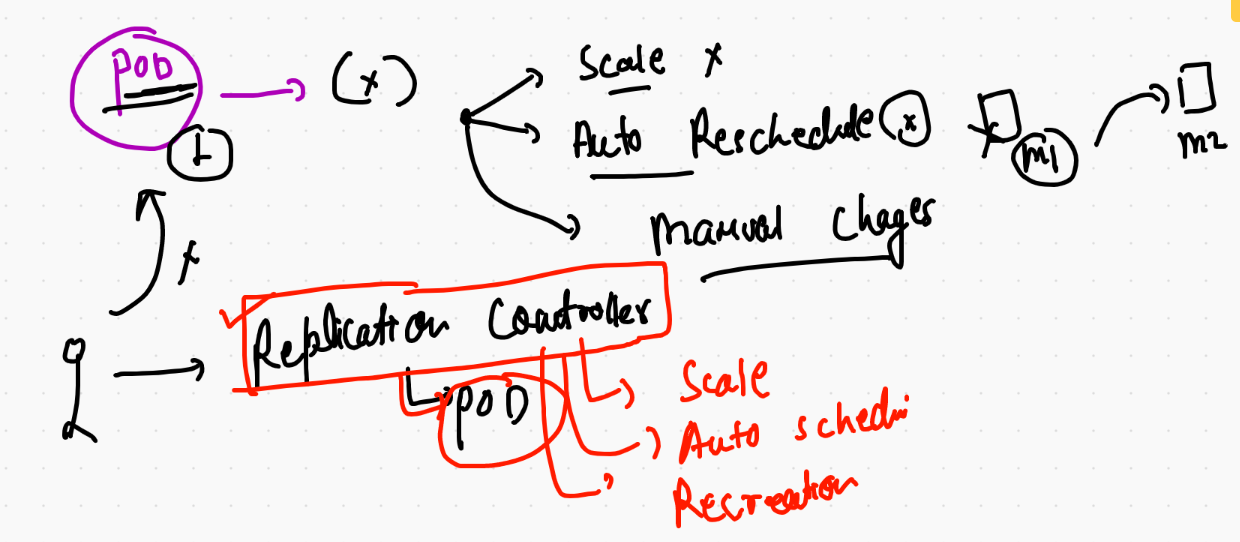 POD
(x)
Scale x
Auto Reschedule (x)
m1
m2
1
manual Chages
x
Replication Controller
POD
Scale
Auto schedu
Recreation